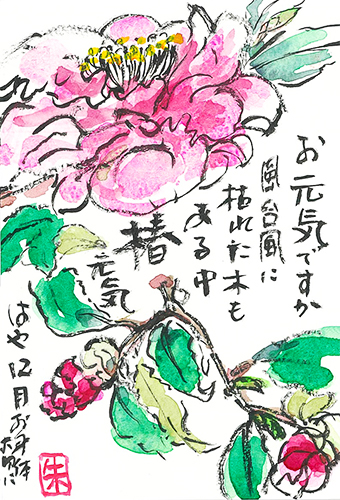 お元気ですか
台風に
枯れた木も
ある中
椿
元気
はや12月お身体
大切に
朱